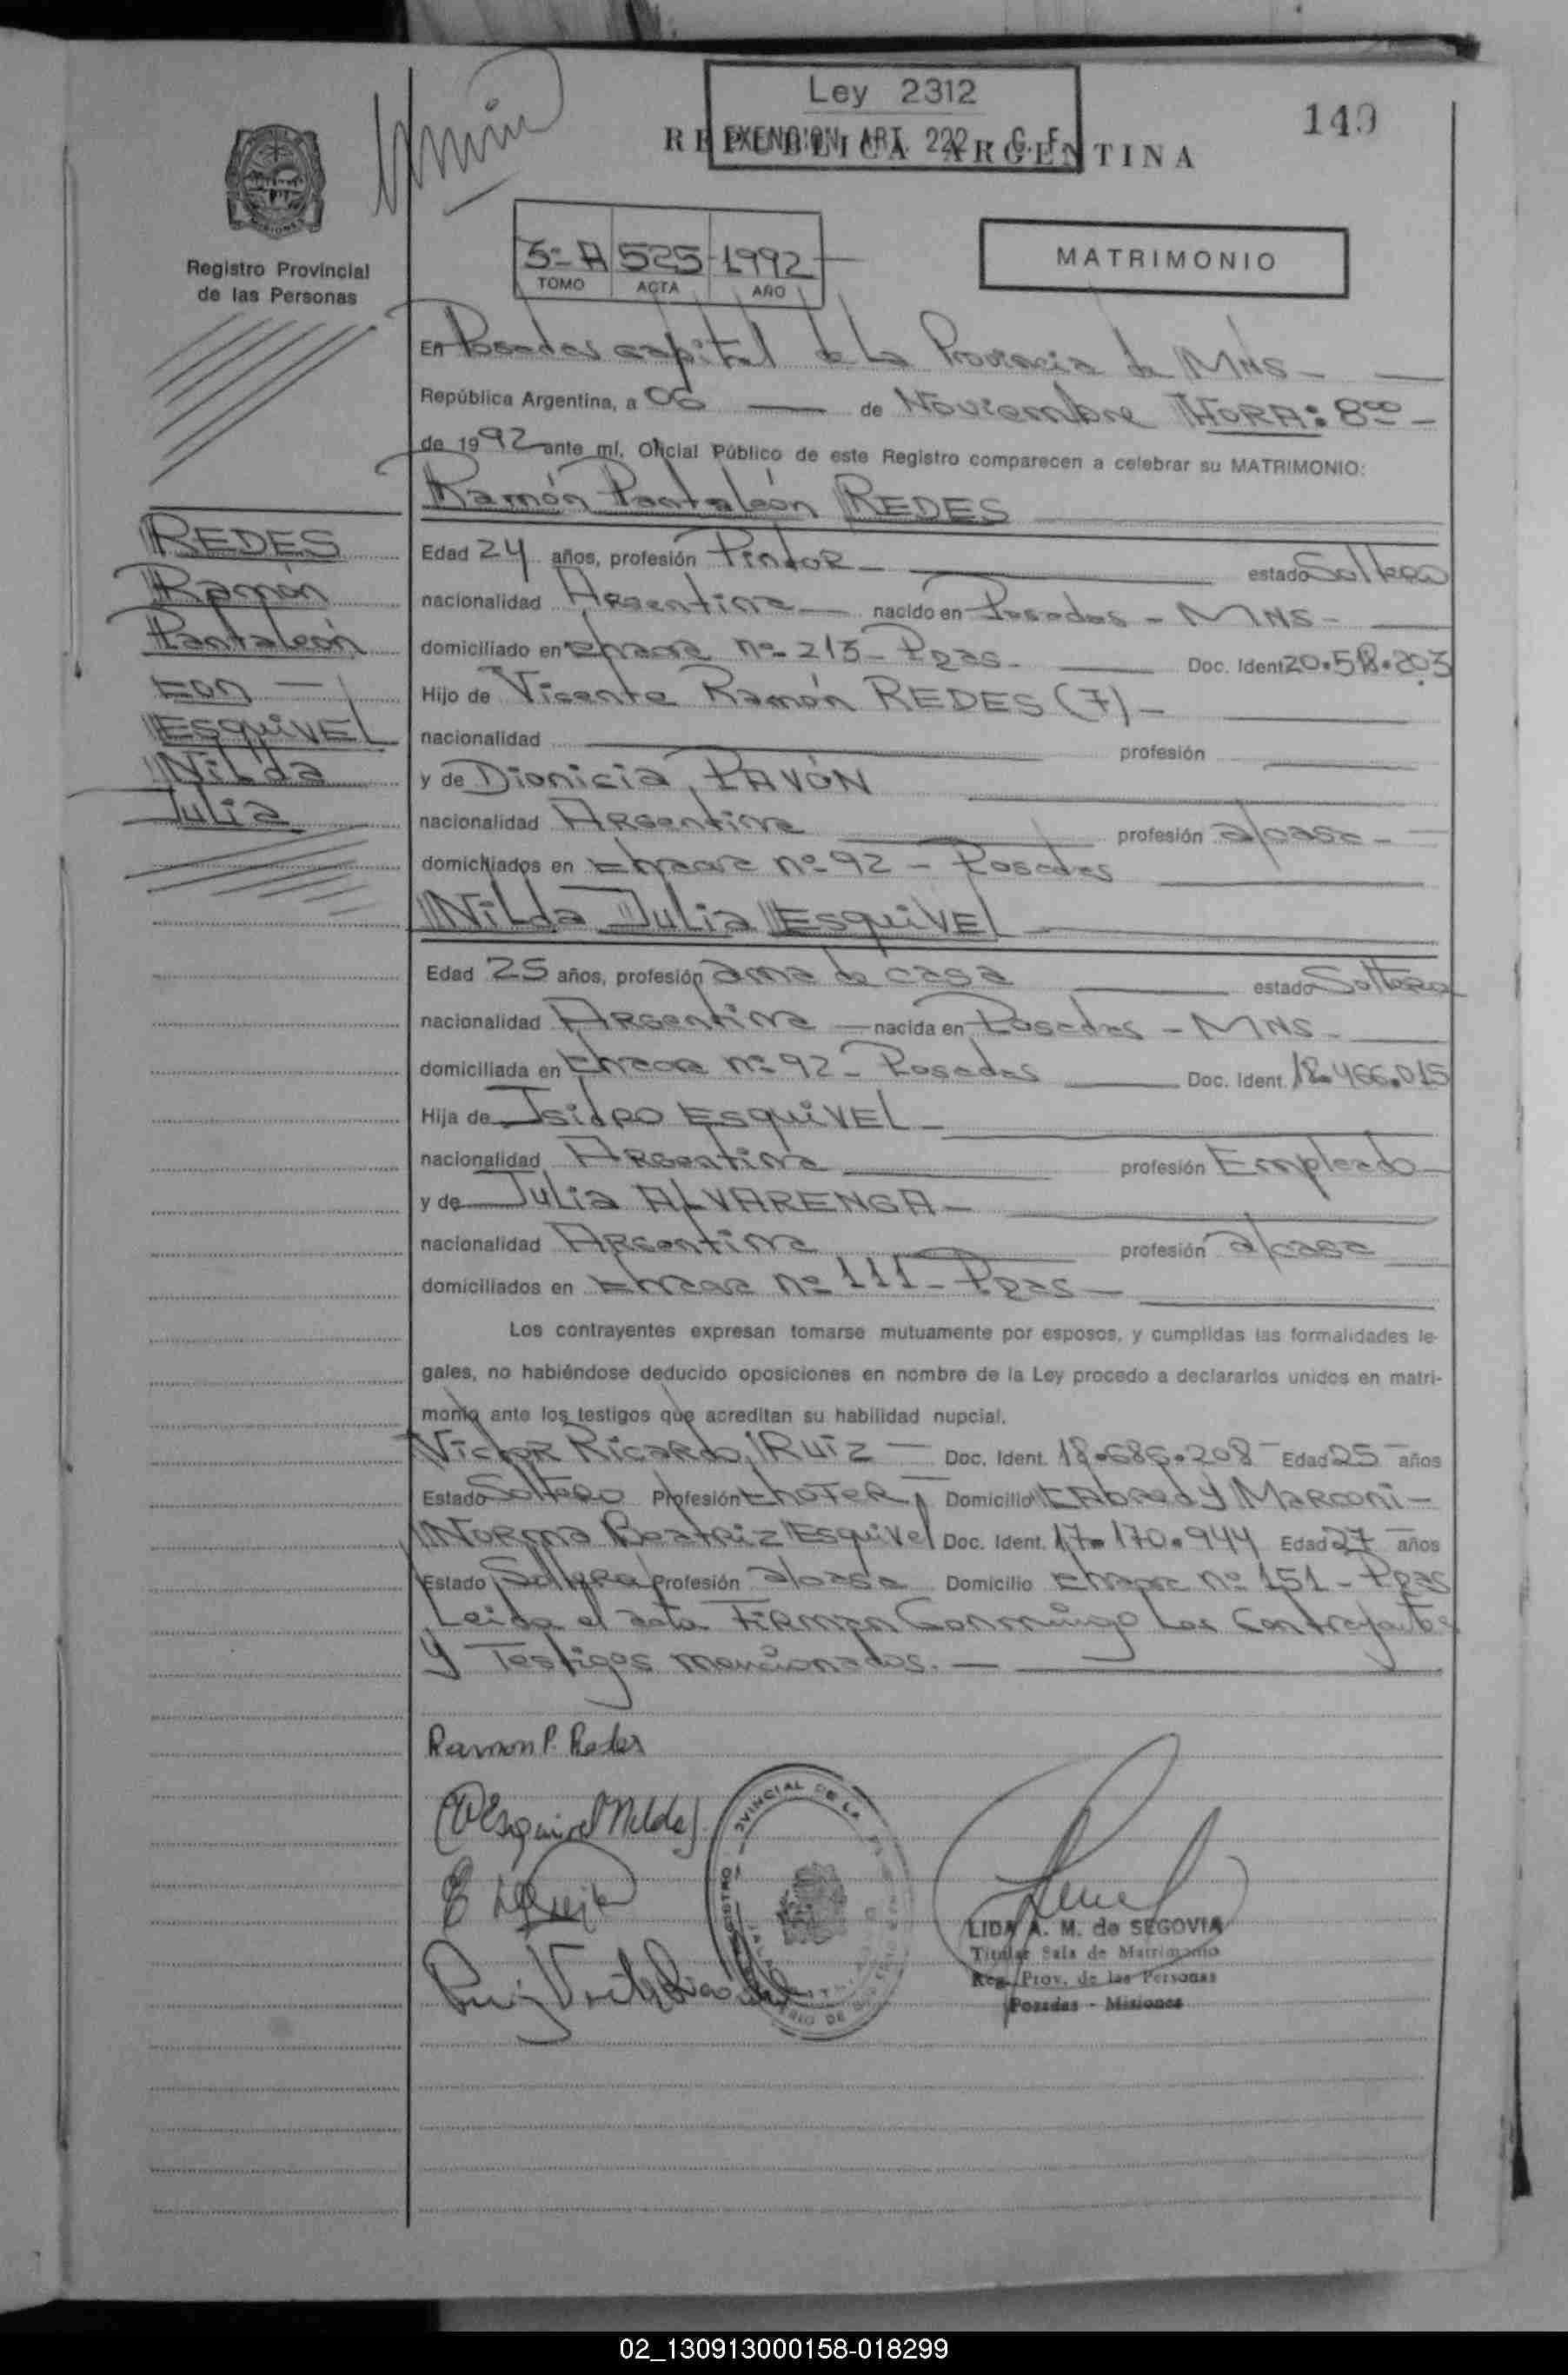 Ley 2312
EXENCION ART. 222 C. F.
140
REPUBLICA ARGENTINA
MISIONES
Registro Provincial
de las Personas
3º A 525 1992
TOMO ACTA AÑO
MATRIMONIO
En Posadas capital de la Provincia de MNS-
República Argentina, a 06 de Noviembre HORA: 8 00 -
de 1992 ante mí, Oficial Público de este Registro comparecen a celebrar su MATRIMONIO:
Ramón Pantaleón REDES
REDES
Ramón
Pantaleón
con -
ESquiVEL
Nilda
Julia
Edad 24 años, profesión Pintor - estado Soltero
nacionalidad Argentina nacido en Posadas - MNS -
domiciliado en chacra nº 213 - Pdas. Doc. Ident
Hijo de Vicente Ramón REDES (7) -
nacionalidad profesión
y de Dionicia PAVÓN
nacionalidad Argentina profesión a/casa -
domiciliados en chacra nº 92 - Posadas
Nilda Julia ESquiVEL
Edad 25 años, profesión ama de casa estado Soltera
nacionalidad Argentina nacida en Posadas - MNS -
domiciliada en chacra nº 92 - Posadas Doc. Ident. 18.466.015
Hija de Isidro ESquiVEL -
nacionalidad Argentina profesión Empleado
y de Julia ALVARENGA -
nacionalidad Argentina profesión a/casa
domiciliados en chacra nº 111 - Pdas -
Los contrayentes expresan tomarse mutuamente por esposos, y cumplidas las formalidades le-
gales, no habiéndose deducido oposiciones en nombre de la Ley procedo a declararlos unidos en matri-
monio ante los testigos que acreditan su habilidad nupcial.
Victor Ricardo Ruiz - Doc. Ident. 18.686.208 - Edad 25 años
Estado Soltero Profesión choFer Domicilio Cabred y Marconi -
Norma Beatriz Esquivel Doc. Ident. 17.170.944 Edad 27 años
Estado Soltera Profesión a/casa Domicilio chacra nº 151 - Pdas
Leida el acta Firman Conmigo Los Contrayentes
y Testigos mencionados. -
Ramon P. Redes
Esquivel Nilda
LIDA A. M. de SEGOVIA
Titular Sala de Matrimonio
Reg. Prov. de las Personas
Posadas - Misiones
02_130913000158-018299